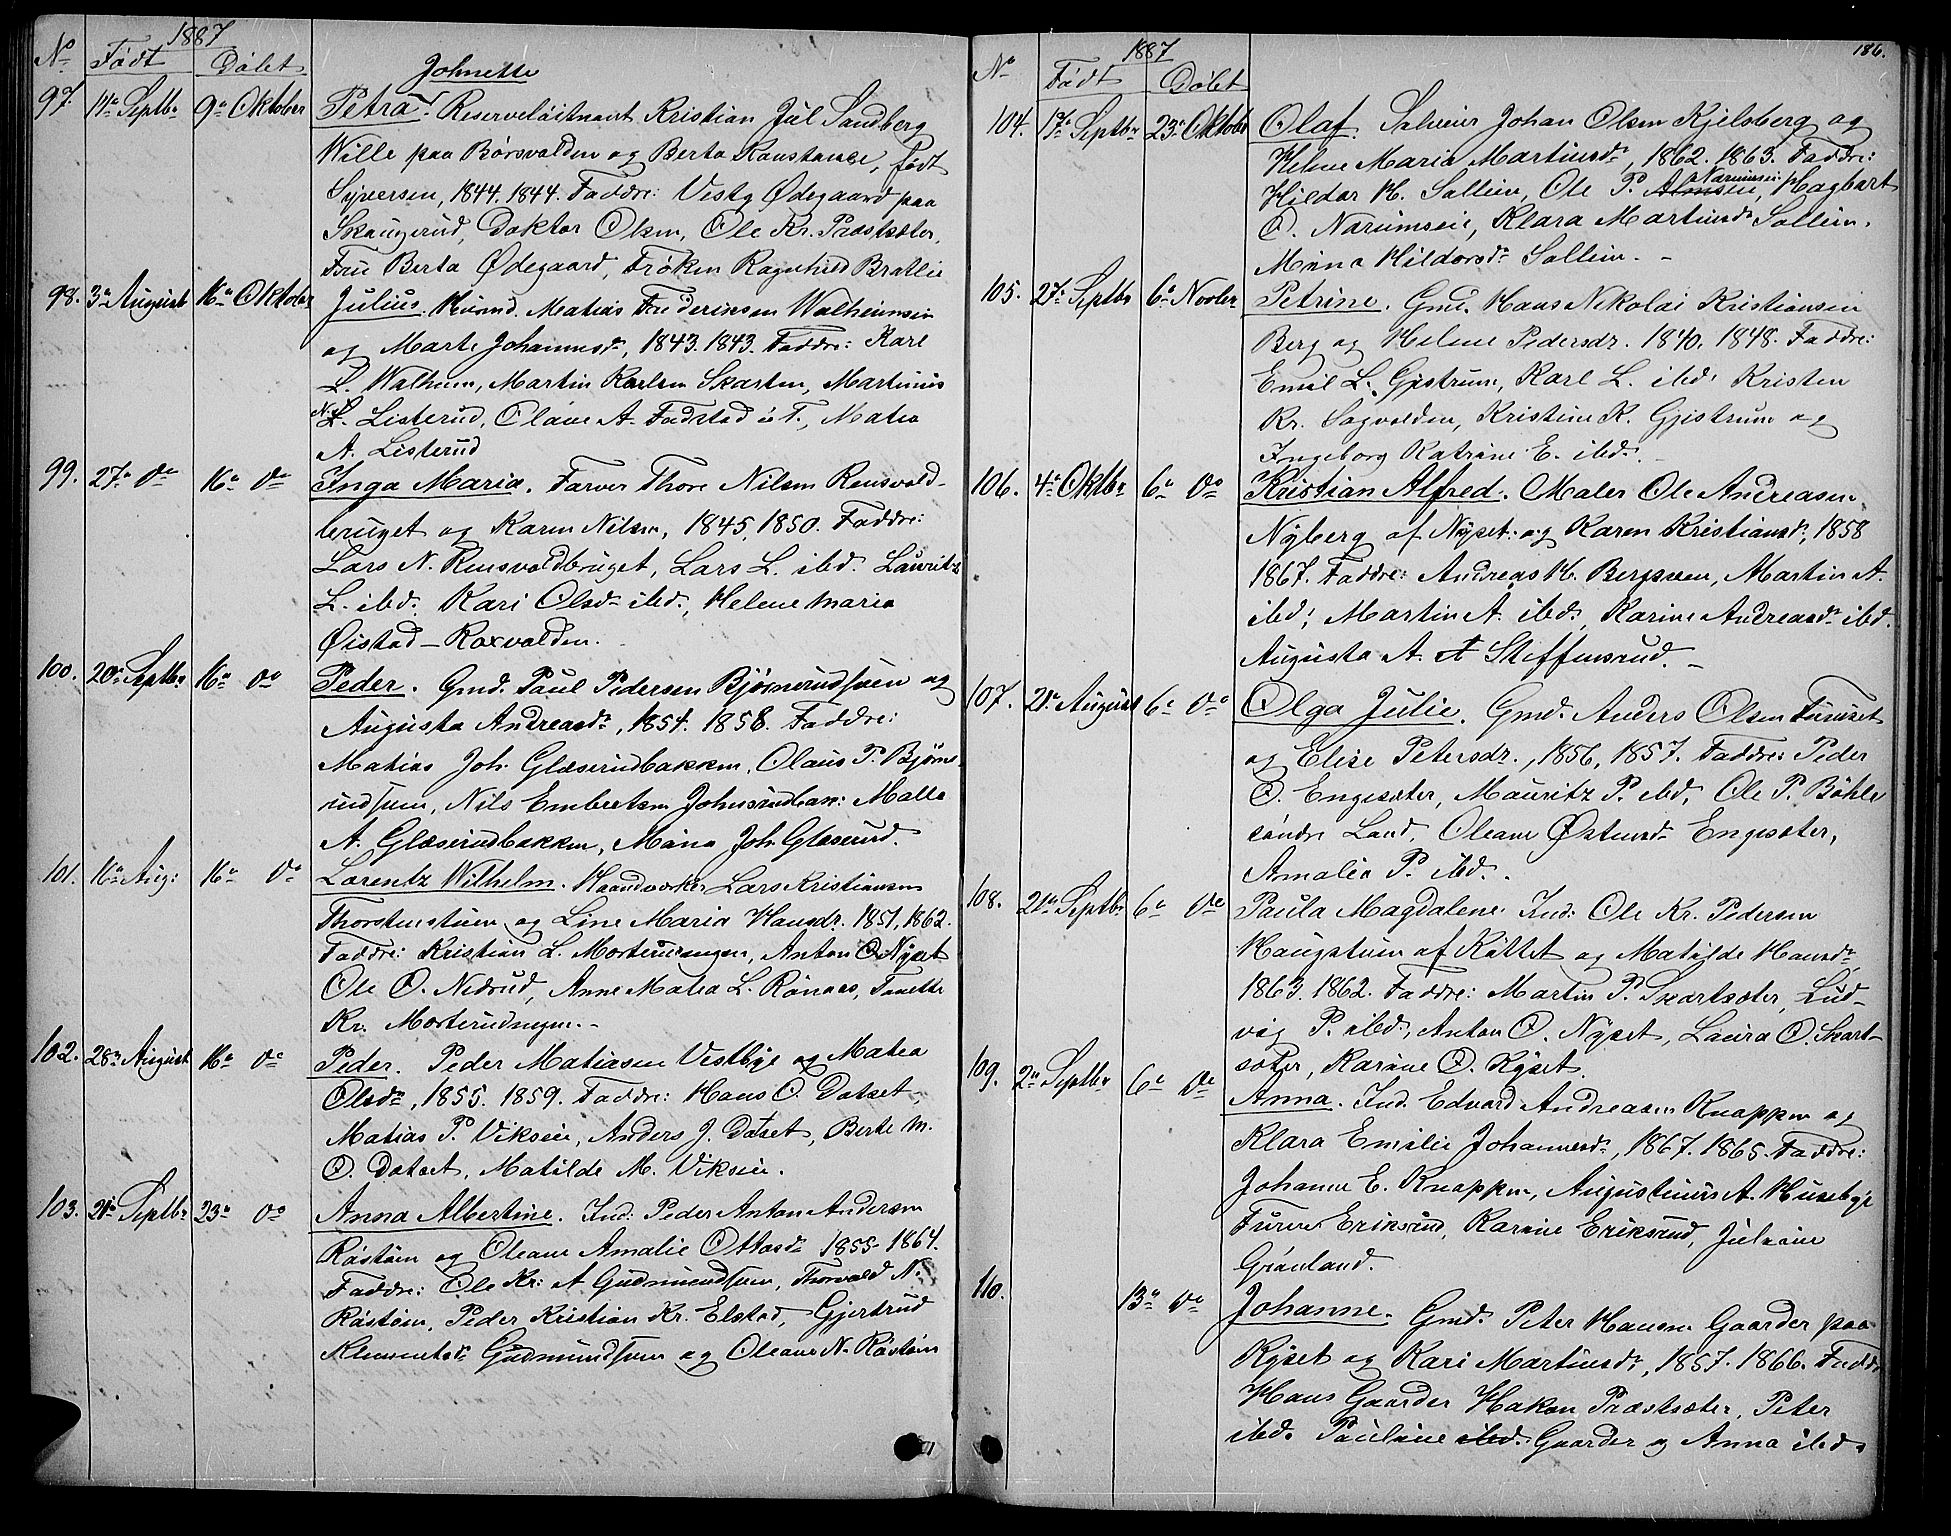 1887
No Födt Dölet
Johnette
97. 11te Septbr 9de Oktober Petra. Reserveløitnant Kristian Jul Sandberg
Wille paa Börsvolden og Berta Konstance, født
Syversen, 1844. 1844. Faddre: Vesty Ødegaard paa
Skaugerud, Doktor Olsen, Ole Kr. Præstsæter,
Fru Berta Ødegaard, Frøken Ragnhild Bratlie
98. 3de August 16de Oktober Julius. Husmd. Matias Frederiksen Walheimsein
og Marte Johannesdr, 1843. 1843. Faddre: Karl
L. Walheim, Martin Karlsen Skarten, Martinius
N. L. Listerud, Olave A. Fadstad i T., Matea
A. Listerud
99. 27de do 16de do Inga Maria. Farver Thore Nilsen Rausvold-
bruget og Karen Nilsen, 1845, 1850. Faddre:
Lars N. Rausvoldbruget, Lars L. ibd. Lauritz
L. ibd. Kari Olsdr ibd., Helene Maria
Øistad - Roxvolden.
100. 20de Septbr 16de do Peder. Gmd. Paul Pedersen Bjørnerudsveen og
Augusta Andreasdr, 1854. 1858. Faddre:
Matias Joh. Glæserudbakken, Olaus P. Bjørne-
rudsveen, Nils Embretsen Johnsrudban: Malla
A. Glæserudbakken, Mina Joh. Glæserud.
101. 16de Aug: 16de do Lorentz Wilhelm. Haandværker Lars Kristiansen
Thorstenstuen og Line Maria Hansdr. 1851, 1862.
Faddre: Kristian L. Morterudengen, Anton O. Nyset
Ole O. Nedrud, Anne Matea L. Rönaas, Tanette
Kr. Morterudengen. -
102. 28de August 16de do Peder. Peder Matiasen Vestbye og Matea
Olsdr, 1855. 1859. Faddre: Hans O. Dotset,
Matias P. Vikseie, Anders J. Dotset, Berte M.
O. Dotset, Matilde M. Vikseie.
103. 21de Septbr 23de do Anna Albertine. Ind: Peder Anton Andersen
Röstöen og Oleane Amalie Ottosdr 1855- 1864.
Faddre: Ole Kr: A Gudmundsveen, Thorvald N.
Röstöen, Peder Kristian Kr. Elstad, Gjertrud
Klemmetsdr Gudmundsveen og Oleane N. Röstöen
186.
1887
No Födt Dölet
104. 17de Septbr 23de Oktober Olaf. Selveier Johan Olsen Kjelsberg og
Helene Maria Martinsdr, 1862. 1863. Faddre:
Hildor H. Sollein, Ole P. Narumseie, Hagbart
O. Narumseie, Klara Martinsdr Sollein.
Mina Hildorsdr Sollein. -
105. 27de Septbr 6te Novbr Petrine. Gmd. Hans Nikolai Kristiansen
Berg og Helene Pedersdr. 1840. 1848. Faddre:
Emil L. Gjistrum, Karl L. ibd. Kristen
Kr. Sagvolden, Kristine K. Gjistrum og
Ingeborg Katrine E. ibd. -
106. 4de Oktbr 6te do Kristian Alfred. Maler Ole Andreasen
Nyberg af Nyset og Karen Kristiansdr, 1858
1867. Faddre: Andreas H. Bergsveen, Martin A.
ibd; Martin A. ibd., Karine Andreasdr ibd.
Augusta A. A Steffensrud. -
107. 21de August 6te do Olga Julie. Gmd. Anders Olsen Furuset
og Elise Petersdr., 1856, 1857. Faddre: Peder
O. Engesæter, Mauritz P. ibd, Ole P. Böhle
söndre Land, Oleane Østensdr Engesæter,
Amalia P. ibd..
108. 21de Septbr 6te do Paula Magdalene. Ind: Ole Kr. Pedersen
Haugstuen af Köttet og Matilde Hansdr
1863. 1862. Faddre: Martin P. Skartsæter, Lud-
vig P. ibd, Anton O. Nyset, Laura O. Skart-
sæter, Karine O. Kyset.
109. 2den Septbr 6te do Anna. Ind. Edvard Andreasen Knappen og
Klara Emilie Johannesdr, 1867. 1865. Faddre:
Johanne E. Knappen, Augustinius A. Husebye
Furer Eriksrud, Karine Eriksrud, Juliane
Grönland.
110. 13de do Johanne. Gmd. Peter Hansen Gaarder paa
Kyset og Kari Martinsdr, 1857. 1866. Faddr
Hans Gaarder Hakon Præstsæter, Peter
ibd. Pauline ibd. Gaarder og Anna ibd.